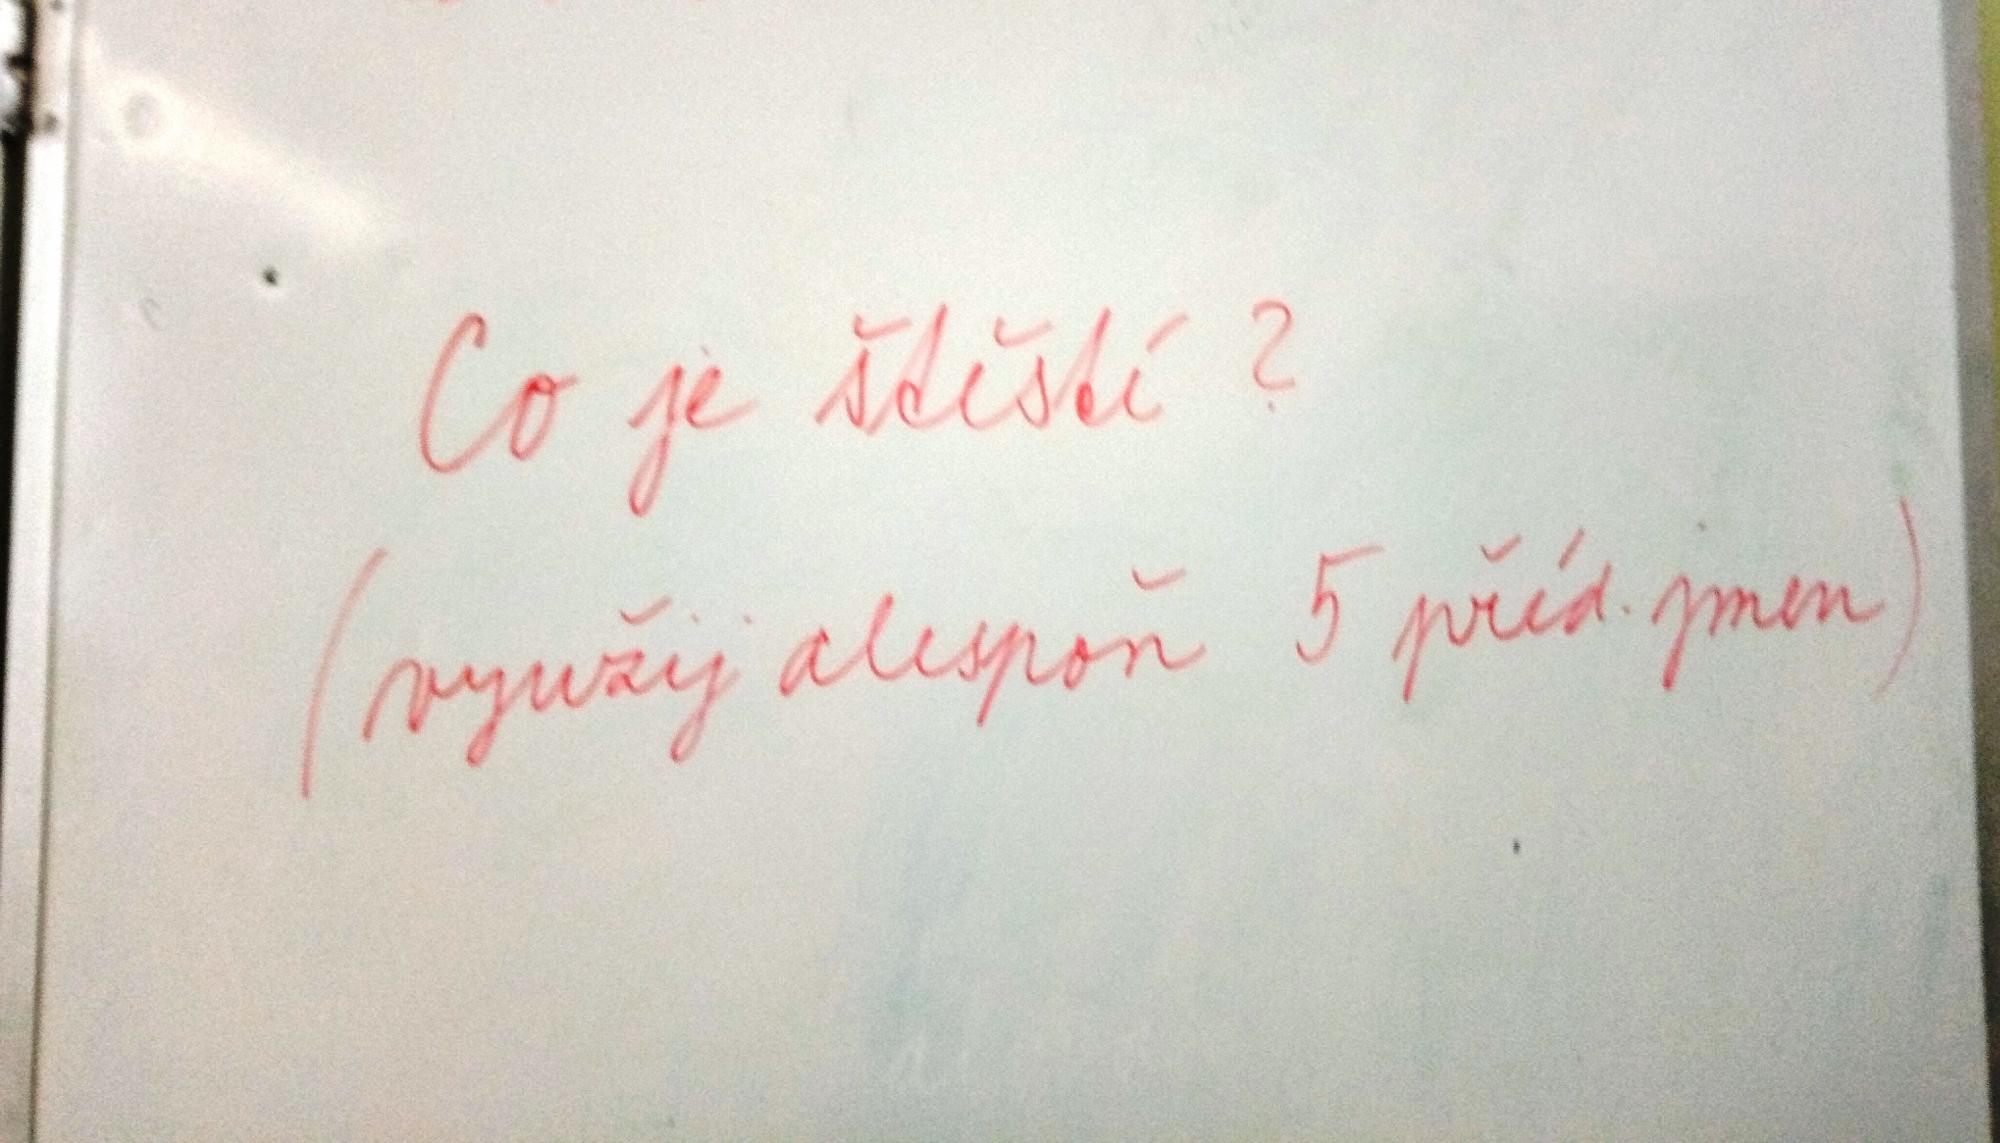 Co je štěstí?
(využij alespoň 5 příd. jmen)